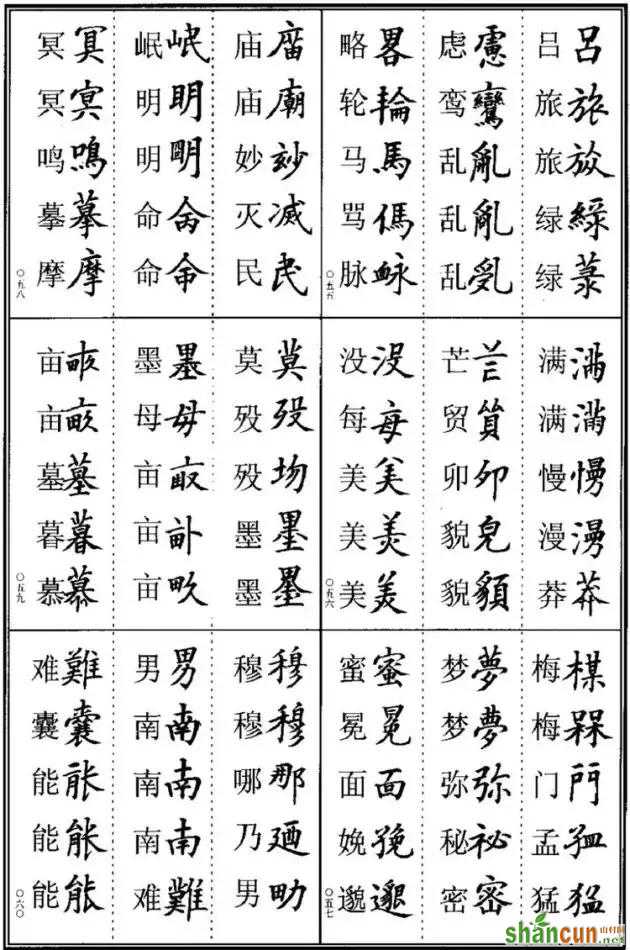 吕呂
旅旅
旅
绿綠
绿菉
虑慮
鸾鸞
乱亂
乱亂
乱
略畧
轮輪
马馬
骂傌
脉
〇五五
满滿
满滿
慢慢
漫漫
莽莽
芒芒
贸貿
卯夘
貌皃
貌
没没
每每
美美
美美
美美
〇五六
梅楳
梅槑
门門
孟孟
猛猛
梦夢
梦夢
弥弥
秘祕
密密
蜜蜜
冕冕
面面
娩
邈邈
〇五七
庙庿
庙廟
妙玅
灭滅
民民
岷岷
明明
明朙
命命
命命
冥冥
冥冥
鸣鳴
摹摹
摩摩
〇五八
莫莫
殁歿
殁圽
墨墨
墨墨
墨墨
母母
亩
亩
亩畝
亩
亩
墓墓
暮暮
慕慕
〇五九
穆穆
穆穆
哪那
乃廼
男
男男
南南
南南
南南
难難
难難
囊囊
能能
能能
能能
〇六〇
shancun
山村网